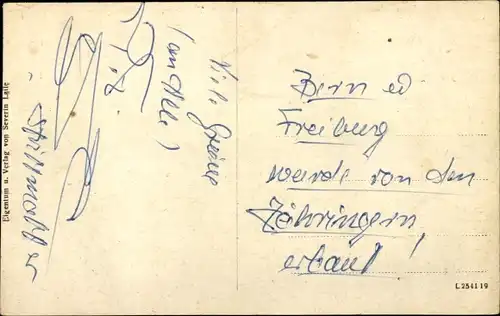 Viele Grüße
(an Alle)
Bern ud
Freiburg
wurde von den
Zähringern
erbaut!
Eigentum u. Verlag von Severin Lalle
L 25 41 19